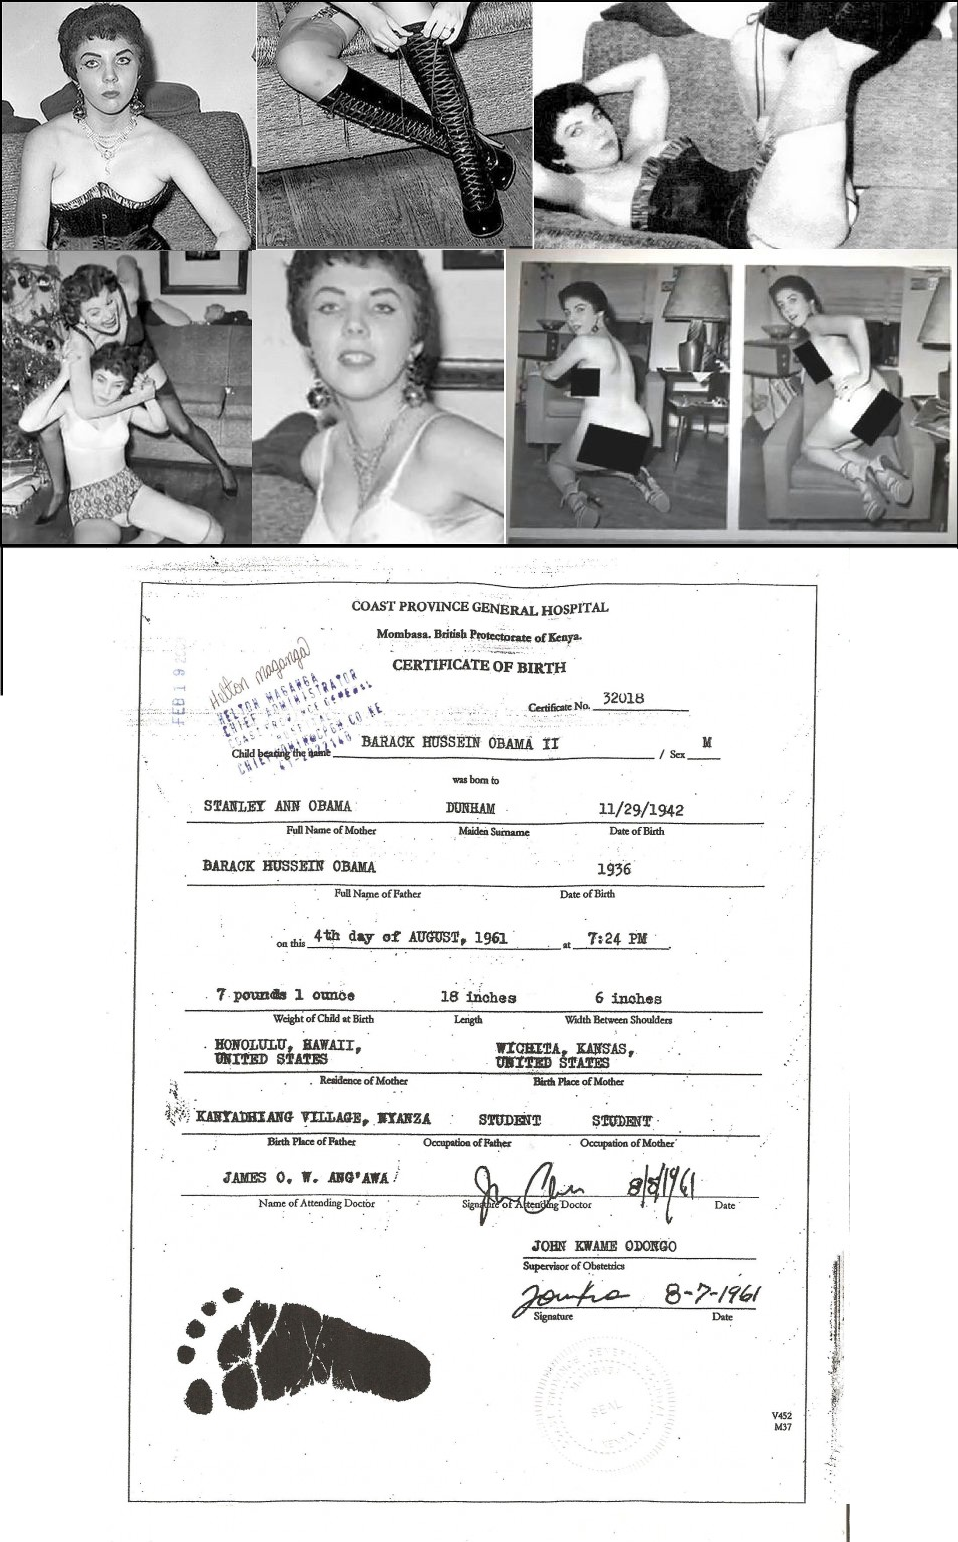 COAST PROVINCE GENERAL HOSPITAL
Mombasa. British Protectorate of Kenya.
CERTIFICATE OF BIRTH
FEB 19
Helton Maganga
HELTON MAGANGA
CHIEF ADMINISTRATOR
COAST PROVINCE GENERAL
Certificate No. 32018
Child bearing the name BARACK HUSSEIN OBAMA II / Sex M
was born to
STANLEY ANN OBAMA DUNHAM 11/29/1942
Full Name of Mother Maiden Surname Date of Birth
BARACK HUSSEIN OBAMA 1936
Full Name of Father Date of Birth
on this 4th day of AUGUST, 1961 at 7:24 PM
7 pounds 1 ounce 18 inches 6 inches
Weight of Child at Birth Length Width Between Shoulders
HONOLULU, HAWAII, WICHITA, KANSAS,
UNITED STATES UNITED STATES
Residence of Mother Birth Place of Mother
KANYADHIANG VILLAGE, NYANZA STUDENT STUDENT
Birth Place of Father Occupation of Father Occupation of Mother
JAMES O. W. ANG'AWA 8/5/1961
Name of Attending Doctor Signature of Attending Doctor Date
JOHN KWAME ODONGO
Supervisor of Obstetrics
8-7-1961
Signature Date
SEAL
V452
M37